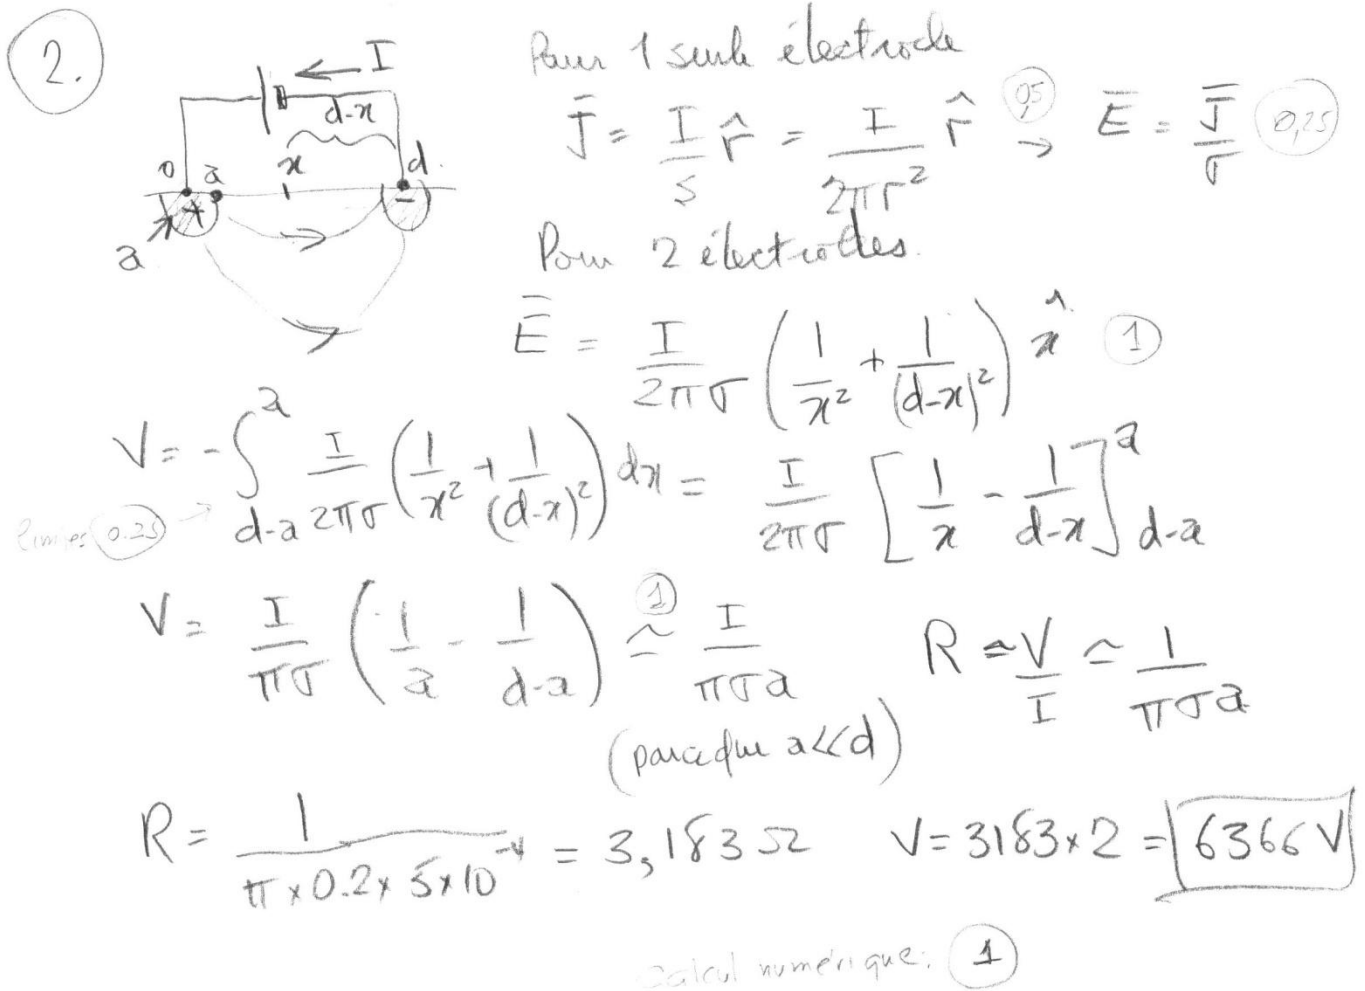 2.
I
d-x
0 a x d
+ -
a
Pour 1 seule électrode
J̄ = I/S r̂ = I/2πr² r̂ (0,5) → Ē = J̄/σ (0,25)
Pour 2 électrodes.
Ē = I/2πσ (1/x² + 1/(d-x)²) x̂ (1)
V = -∫_{d-a}^{a} I/2πσ (1/x² + 1/(d-x)²) dx = I/2πσ [1/x - 1/d-x]_{d-a}^{a}
limites (0.25) →
V = I/πσ (1/a - 1/d-a) ≃ (1) I/πσa R = V/I ≃ 1/πσa
(parceque a<<d)
R = 1/π×0.2×5×10⁻⁴ = 3,183 Ω V = 3183×2 = 6366 V
calcul numérique: (1)